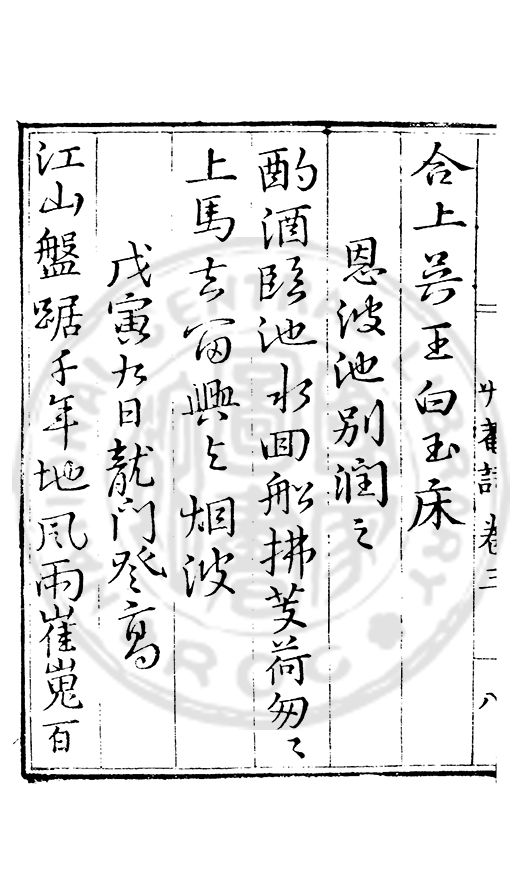 合上吴王白玉床
恩波池别润之
酌酒临池水回船拂芰荷匆々
上馬去留興与烟波
戊寅九日龍门登高
江山盤踞千年地风雨崔嵬百
卷三
八